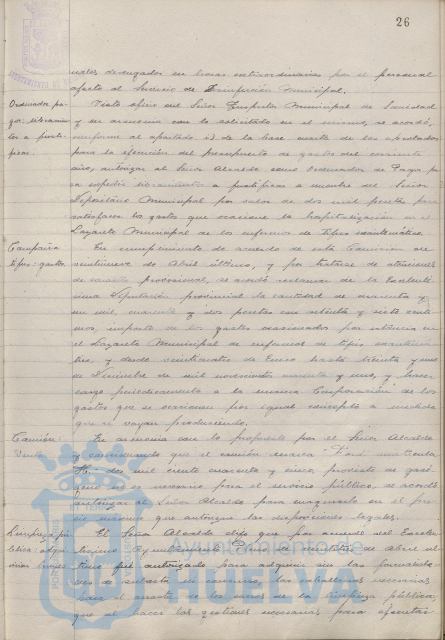 26
nales devengados en horas extraordinarias por el personal
afecto al Servicio de Desinfección Municipal.
Ordenador pa-
gos: libramien-
tos a justi-
ficar.
Visto oficio del Señor Inspector Municipal de Sanidad
y en armonía con lo solicitado en el mismo, se acordó,
conforme al apartado 13 de la base de las aprobadas
para la ejecución del presupuesto de gastos del corriente
año, autorizar al Señor Alcalde como Ordenador de Pagos, pa-
ra expedir libramientos a justificar a nombre del Señor
Depositario Municipal por valor de dos mil pesetas para
satisfacer los gastos que ocasione la hospitalización en el
Lazareto Municipal de los enfermos de tifus exantemático.
Campaña
tifus: gastos
En cumplimiento de acuerdo de esta Comisión de
veintinueve de Abril último, y por tratarse de atenciones
de carácter provincial, se acordó reclamar de la Excelentí-
sima Diputación provincial la cantidad de cuarenta y
un mil, cuarenta y dos pesetas con setenta y siete cénti-
mos, importe de los gastos ocasionados por estancias en
el Lazareto Municipal de enfermos de tifus exantemá-
tico, y desde veinticuatro de Enero hasta treinta y uno
de Diciembre de mil novecientos cuarenta y uno, y hacer
cargo periódicamente a la misma Corporación de los
gastos que se ocasionen por igual concepto a medida
que se vayan produciendo.
Camión:
Venta
En armonía con lo propuesto por el Señor Alcalde
y considerando que el camión marca Ford matrícula
H. dos mil ciento cuarenta y cinco, provisto de gasó-
geno no es necesario para el servicio público, se acordó
autorizar al Señor Alcalde para enagenarlo en el pre-
cio máximo que autorizan las disposiciones legales.
Limpieza pú-
blica: adqui-
sición
El Señor Alcalde dijo que por acuerdo del Excelen-
tísimo Ayuntamiento Pleno de de Abril úl-
timo fué autorizado para adquirir sin las formalida-
des de subasta ni concurso, las caballerías necesarias
para el arrastre de los carros de la limpieza pública,
que al hacer las gestiones necesarias para ejecutar
Ayuntamiento de
Huelva